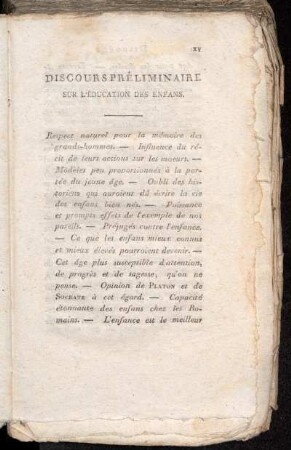 xv
DISCOURS PRÉLIMINAIRE
SUR L'ÉDUCATION DES ENFANS.
Respect naturel pour la mémoire des
grands-hommes. — Influence du ré-
cit de leurs actions sur les moeurs. —
Modèles peu proportionnés à la por-
tée du jeune âge. — Oubli des his-
toriens qui auraient dû écrire la vie
des enfans bien nés. — Puissance
et prompts effets de l'exemple de nos
pareils. — Préjugés contre l'enfance.
— Ce que les enfans mieux connus
et mieux élevés pourraient devenir. —
Cet âge plus susceptible d'attention,
de progrès et de sagesse, qu'on ne
pense. — Opinion de PLATON et de
SOCRATE à cet égard. — Capacité
étonnante des enfans chez les Ro-
mains. — L'enfance est le meilleur